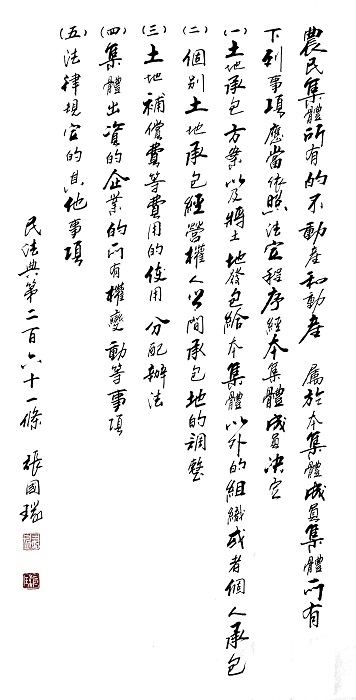 農民集體所有的不動產和動產 屬於本集體成員集體所有
下列事項應當依照法定程序經本集體成員決定
(一)土地承包方案以及將土地發包給本集體以外的組織或者個人承包
(二)個別土地承包經營權人之間承包地的調整
(三)土地補償費等費用的使用 分配辦法
(四)集體出資的企業的所有權變動等事項
(五)法律規定的其他事項
民法典第二百六十一條 張國瑞